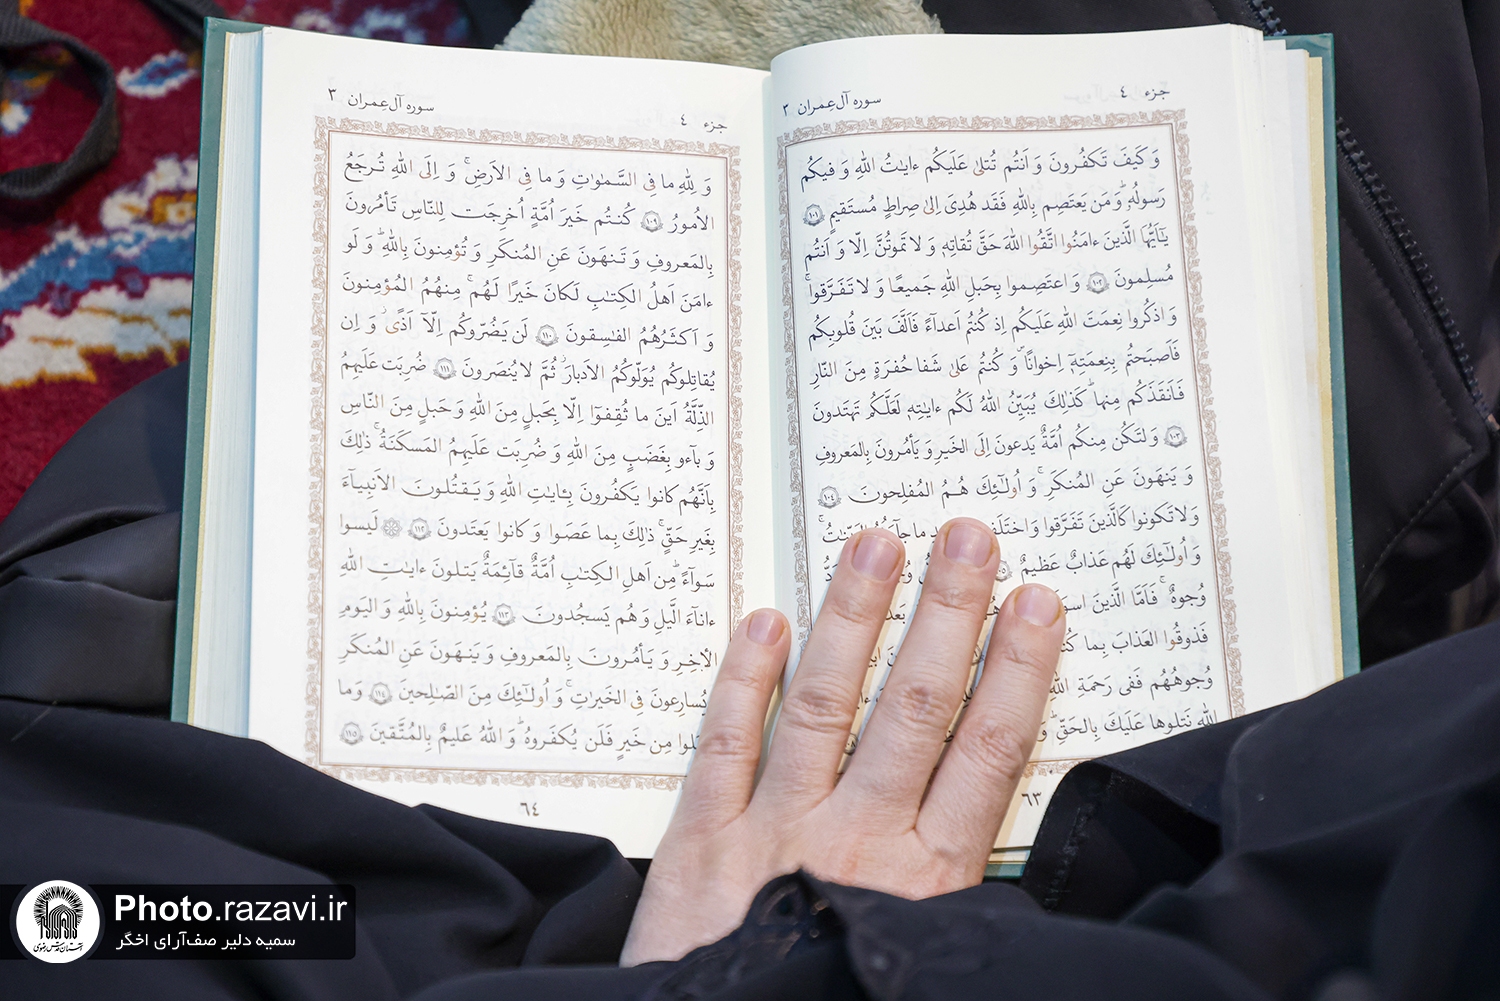 جزء ٤
سوره آل‌عِمران ٣
وَ كَيفَ تَكفُرونَ وَ اَنتُم تُتلىٰ عَلَيكُم ءايٰتُ اللهِ وَ فيكُم
رَسولُهُ ۗ وَ مَن يَعتَصِم بِاللهِ فَقَد هُدِىَ اِلىٰ صِراطٍ مُستَقيمٍ ١٠١
يٰاَيُّهَا الَّذينَ ءامَنُوا اتَّقُوا اللهَ حَقَّ تُقاتِهٖ وَ لا تَموتُنَّ اِلّا وَ اَنتُم
مُسلِمونَ ١٠٢ وَ اعتَصِموا بِحَبلِ اللهِ جَميعًا وَ لا تَفَرَّقوا ۚ
وَ اذكُروا نِعمَتَ اللهِ عَلَيكُم اِذ كُنتُم اَعدآءً فَاَلَّفَ بَينَ قُلوبِكُم
فَاَصبَحتُم بِنِعمَتِهٖٓ اِخوانًا وَ كُنتُم عَلىٰ شَفا حُفرَةٍ مِنَ النّارِ
فَاَنقَذَكُم مِنها ۗ كَذٰلِكَ يُبَيِّنُ اللهُ لَكُم ءايٰتِهٖ لَعَلَّكُم تَهتَدونَ
١٠٣ وَ لتَكُن مِنكُم اُمَّةٌ يَدعونَ اِلَى الخَيرِ وَ يَأمُرونَ بِالمَعروفِ
وَ يَنهَونَ عَنِ المُنكَرِ ۚ وَ اُولٰٓئِكَ هُمُ المُفلِحونَ ١٠٤
وَ لا تَكونوا كَالَّذينَ تَفَرَّقوا وَ اختَلَفوا ما جآءَهُمُ البَيِّنٰتُ ۚ
وَ اُولٰٓئِكَ لَهُم عَذابٌ عَظيمٌ ١٠٥
وُجوهٌ ۚ فَاَمَّا الَّذينَ اسوَ بَعدَ
فَذوقُوا العَذابَ بِما كُنـ
وُجوهُهُم فَفى رَحمَةِ اللهِ
اللهِ نَتلوها عَلَيكَ بِالحَقِّ ۗ وَ
٦٣
جزء ٤
سوره آل‌عِمران ٣
وَ لِلّهِ ما فِى السَّمٰوٰتِ وَ ما فِى الاَرضِ ۚ وَ اِلَى اللهِ تُرجَعُ
الاُمورُ ١٠٩ كُنتُم خَيرَ اُمَّةٍ اُخرِجَت لِلنّاسِ تَأمُرونَ
بِالمَعروفِ وَ تَنهَونَ عَنِ المُنكَرِ وَ تُؤمِنونَ بِاللهِ ۗ وَ لَو
ءامَنَ اَهلُ الكِتٰبِ لَكانَ خَيرًا لَهُم ۚ مِنهُمُ المُؤمِنونَ
وَ اَكثَرُهُمُ الفٰسِقونَ ١١٠ لَن يَضُرّوكُم اِلّآ اَذًى ۖ وَ اِن
يُقاتِلوكُم يُوَلّوكُمُ الاَدبارَ ثُمَّ لا يُنصَرونَ ١١١ ضُرِبَت عَلَيهِمُ
الذِّلَّةُ اَينَ ما ثُقِفوٓا اِلّا بِحَبلٍ مِنَ اللهِ وَ حَبلٍ مِنَ النّاسِ
وَ بآءو بِغَضَبٍ مِنَ اللهِ وَ ضُرِبَت عَلَيهِمُ المَسكَنَةُ ۚ ذٰلِكَ
بِاَنَّهُم كانوا يَكفُرونَ بِـٔايٰتِ اللهِ وَ يَقتُلونَ الاَنبِيآءَ
بِغَيرِ حَقٍّ ۚ ذٰلِكَ بِما عَصَوا وَ كانوا يَعتَدونَ ١١٢ لَيسوا
سَوآءً ۗ مِن اَهلِ الكِتٰبِ اُمَّةٌ قآئِمَةٌ يَتلونَ ءايٰتِ اللهِ
ءانآءَ الَّيلِ وَ هُم يَسجُدونَ ١١٣ يُؤمِنونَ بِاللهِ وَ اليَومِ
الاٰخِرِ وَ يَأمُرونَ بِالمَعروفِ وَ يَنهَونَ عَنِ المُنكَرِ
وَ يُسارِعونَ فِى الخَيرٰتِ ۚ وَ اُولٰٓئِكَ مِنَ الصّٰلِحينَ ١١٤ وَ ما
يَفعَلوا مِن خَيرٍ فَلَن يُكفَروهُ ۗ وَ اللهُ عَليمٌ بِالمُتَّقينَ ١١٥
٦٤
Photo.razavi.ir
سمیه دلیر صف‌آرای اخگر
آستان قدس رضوی